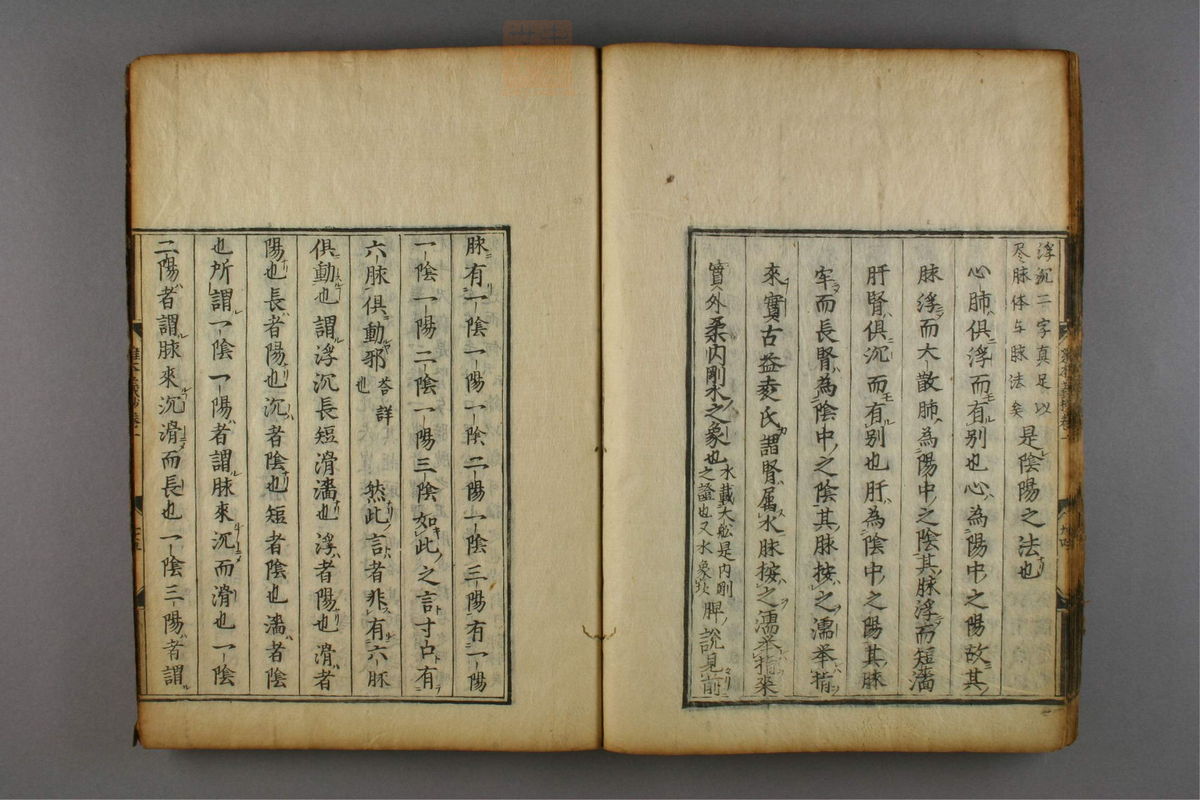 浮沉二字真足以
尽脉体与脉法矣
是陰陽之法也
心肺俱浮而有别也心為陽中之陽故其
脉浮而大散肺為陽中之陰其脉浮而短濇
肝腎俱沉而有别也肝為陰中之陽其脉
牢而長腎為陰中之陰其脉按之濡举指
來實古益袁氏謂腎属水脉按之濡举指來
實外柔内剛水之象也
水載大舩是内剛
之證也又水象坎
脾説見前
脉有一陰一陽一陰二陽一陰三陽有一陽
一陰一陽二陰一陽三陰如此之言寸口有
六脉俱動邪
答詳
也
然此言者非有六脉
俱動也謂浮沉長短滑濇也浮者陽也滑者
陽也長者陽也沉者陰也短者陰也濇者陰
也所謂一陰一陽者謂脉來沉而滑也一陰
二陽者謂脉來沉滑而長也一陰三陽者謂